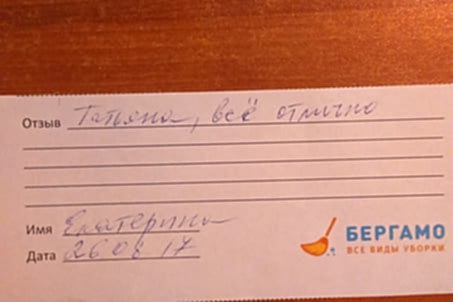 Отзыв Татьяна, всё отлично
Имя Екатерина
Дата 26 08 17
БЕРГАМО
ВСЕ ВИДЫ УБОРКИ